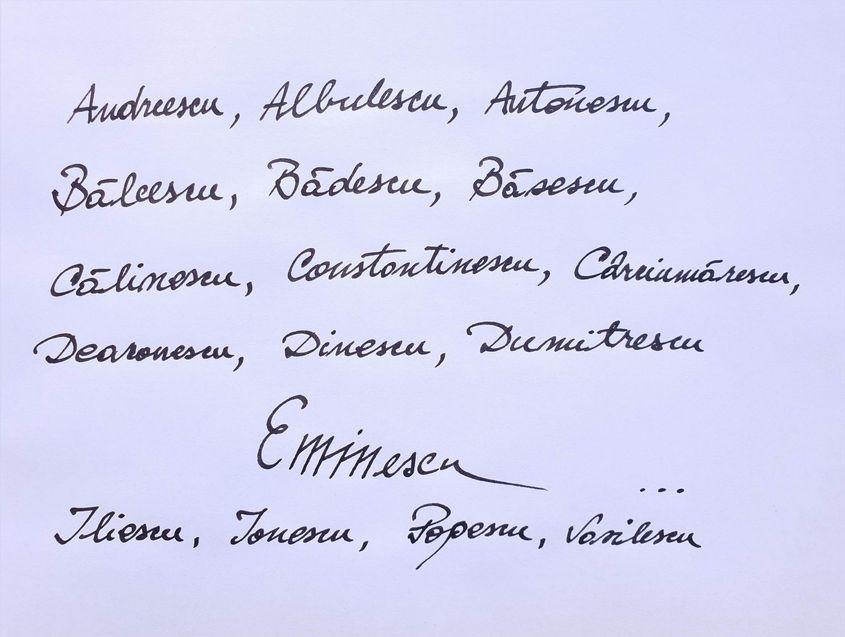 Andreescu, Albulescu, Antonescu,
Bălcescu, Bădescu, Băsescu,
Călinescu, Constantinescu, Cârciumărescu,
Dearonescu, Dinescu, Dumitrescu
Eminescu
...
Iliescu, Ionescu, Popescu, Vasilescu